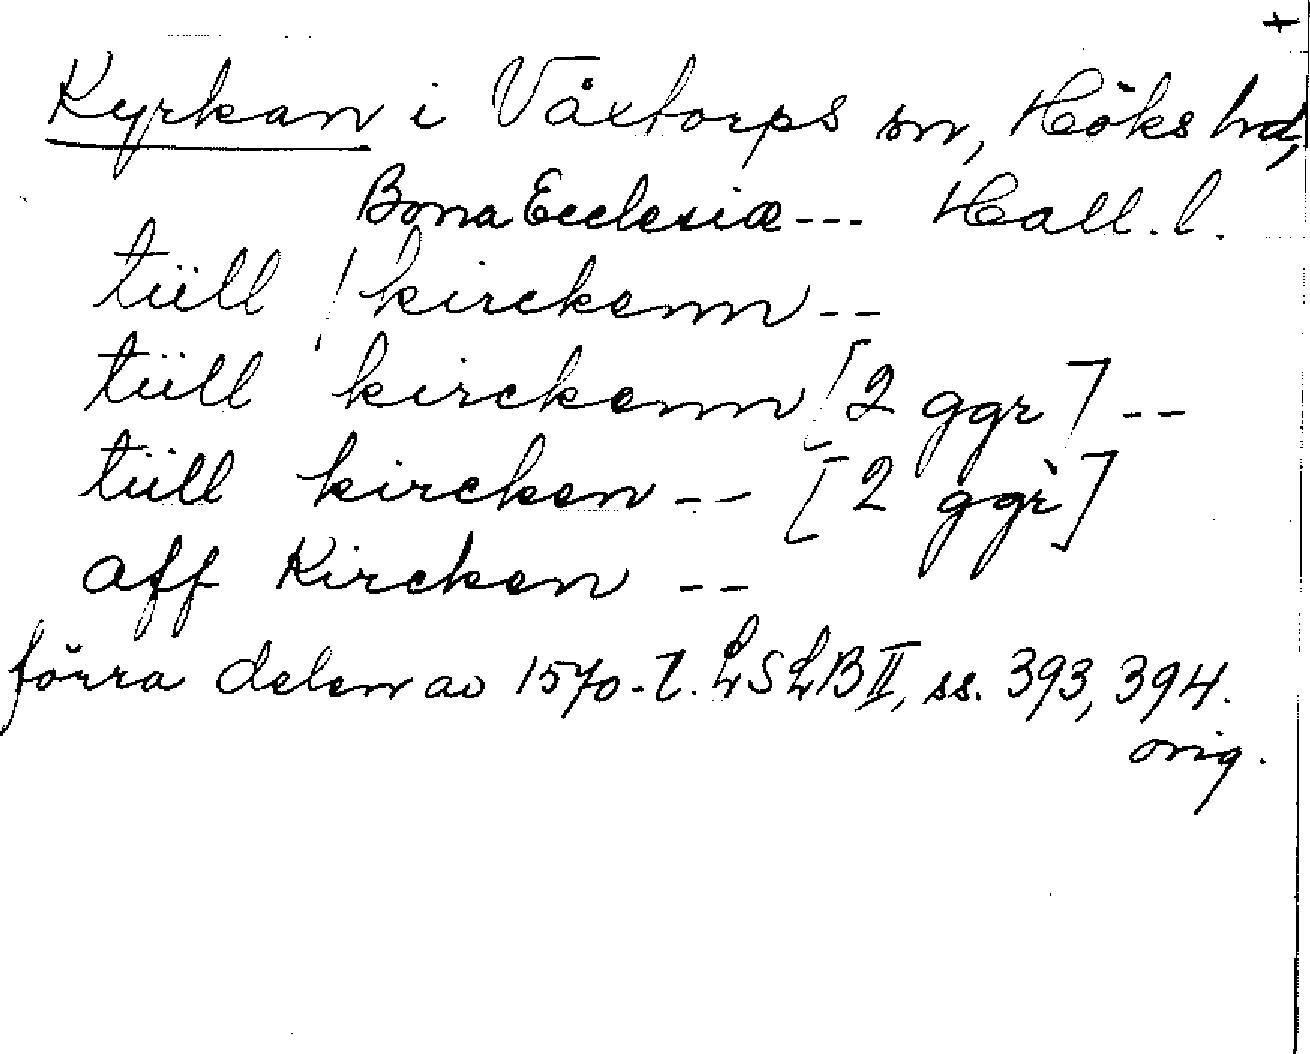 +
Kyrkan i Våxtorps sn, Höks hd,
Bona Ecclesiæ --- Hall. l.
tüll / kirckenn --
tüll kirckenn [2 ggr] --
tüll kircken -- [2 ggr]
aff Kircken --
förra delen av 1570-t. LSLB II, ss. 393, 394.
orig.